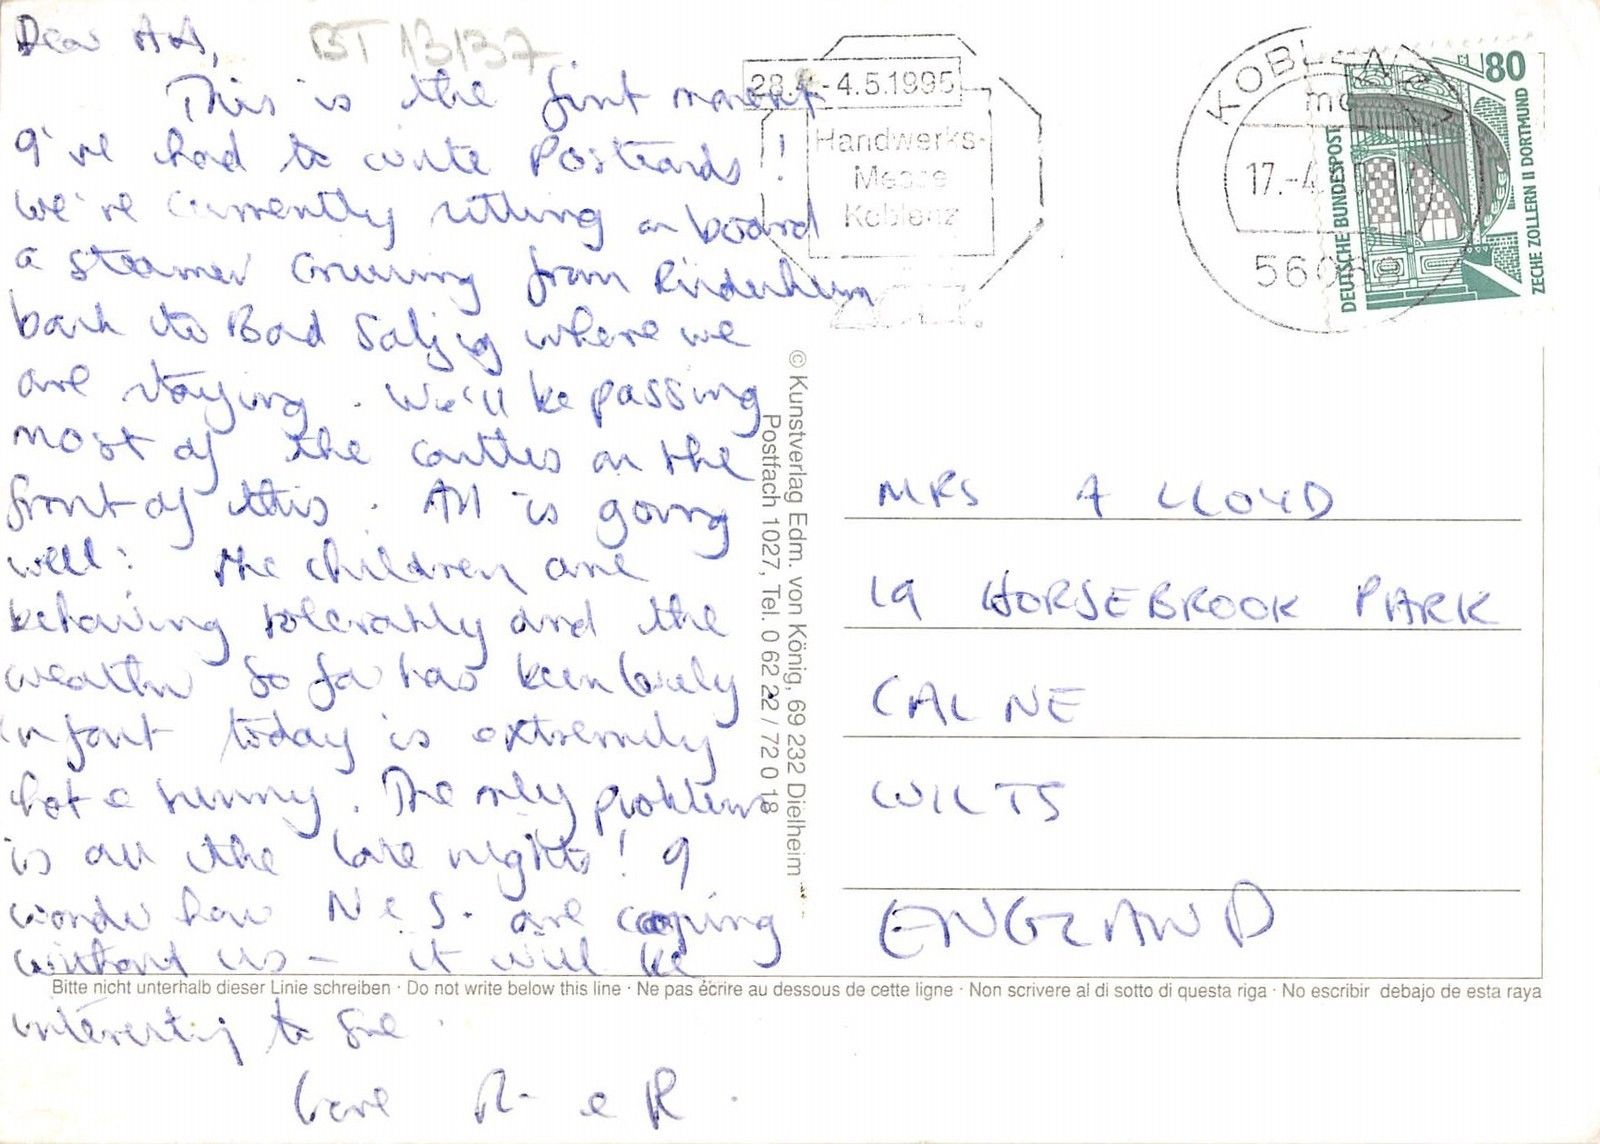 BT 13137
Dear
This is the first moment
I've had to write Postcards!
We're currently sitting on board
a steamer cruising from
back to Bad Salzig where we
are staying. We'll be passing
most of the castles on the
front of this. All is going
well: the children are
behaving tolerably and the
weather so far has been lovely
infact today is extremely
hot & sunny. The only problem
is all the late nights! I
wonder how N & S. are coping
without us - it will be
interesting to see.
love R & R.
28.4-4.5.1995
Handwerks-
Messe
Koblenz
KOBLENZ
17.-4
80
DEUTSCHE BUNDESPOST
ZECHE ZOLLERN II DORTMUND
© Kunstverlag Edm. von König, 69 232 Dielheim
Postfach 1027, Tel. 0 62 22 / 72 0 18
MRS A LLOYD
19 HORSEBROOK PARK
CALNE
WILTS
ENGLAND
Bitte nicht unterhalb dieser Linie schreiben · Do not write below this line · Ne pas écrire au dessous de cette ligne · Non scrivere al di sotto di questa riga · No escribir debajo de esta raya